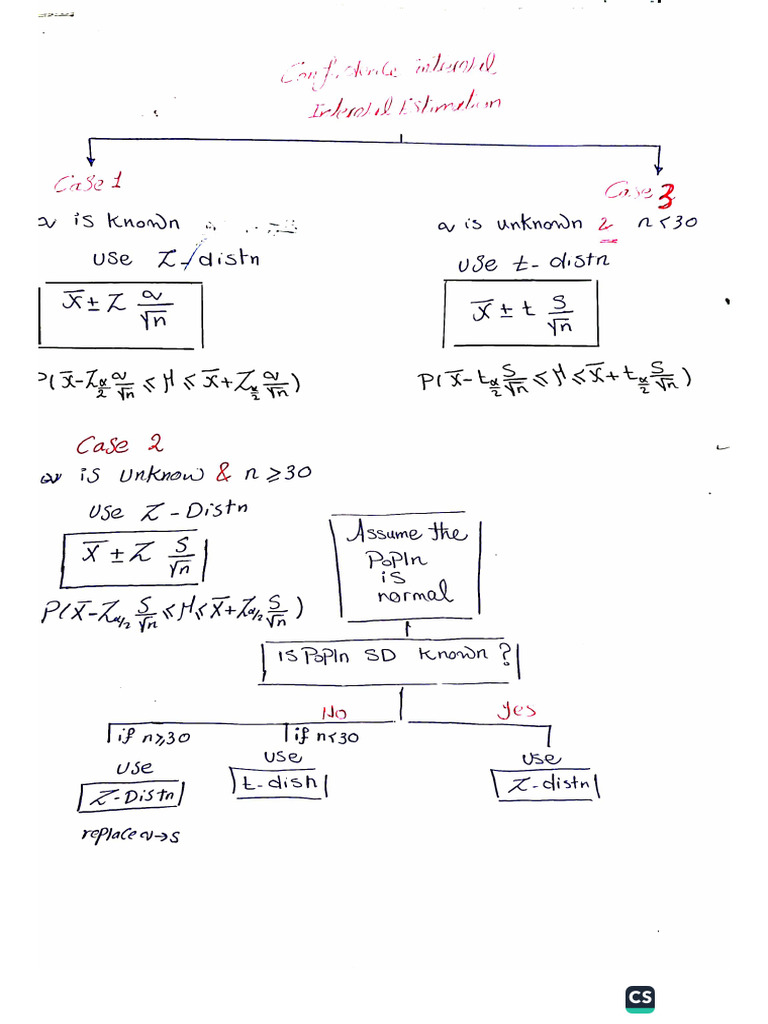 Confidence interval
Interval Estimation
Case 1
σ is known
use Z-distn
x̄ ± Z σ/√n
P(x̄-Zα/2 σ/√n ≤ μ ≤ x̄+Zα/2 σ/√n)
Case 3
σ is unknown & n<30
use t-distn
x̄ ± t S/√n
P(x̄-tα/2 S/√n ≤ μ ≤ x̄+tα/2 S/√n)
Case 2
σ is unknow & n≥30
use Z-Distn
x̄ ± Z S/√n
P(x̄-Zα/2 S/√n ≤ μ ≤ x̄+Zα/2 S/√n)
Assume the
Popln
is
normal
is Popln SD known?
No
Yes
if n≥30
use
Z-Distn
replace σ→s
if n<30
use
t-distn
use
Z-distn
CS